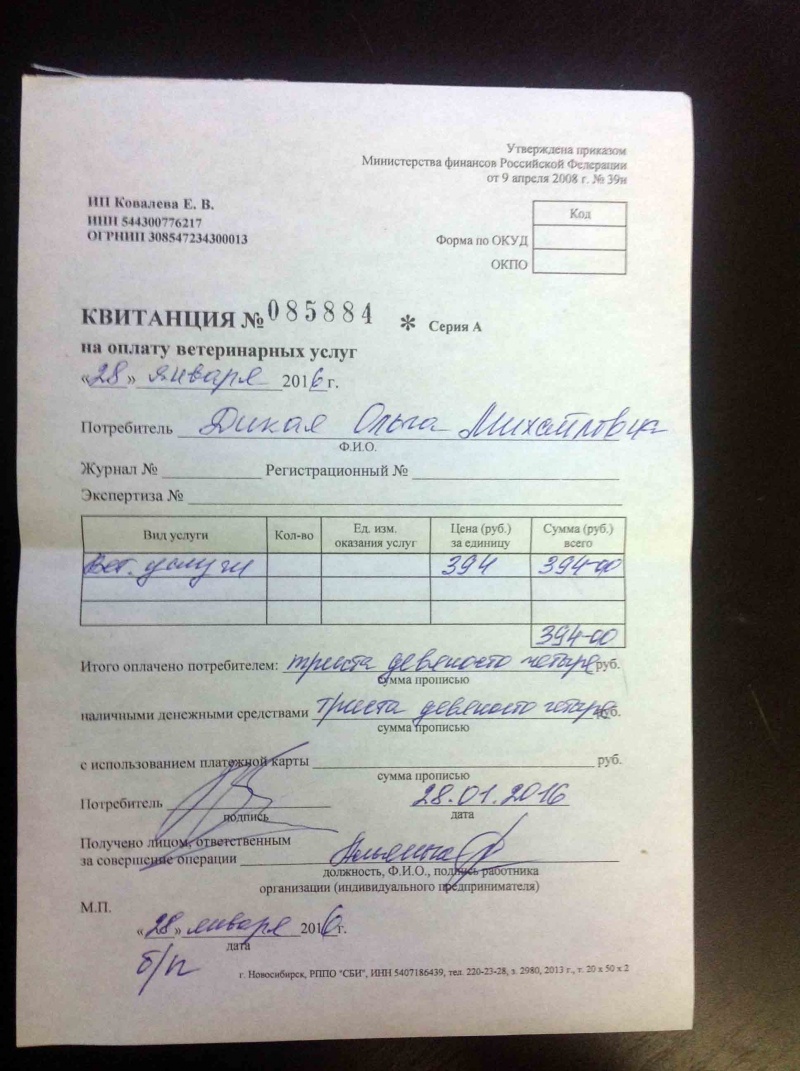 Утверждена приказом
Министерства финансов Российской Федерации
от 9 апреля 2008 г. № 39н
ИП Ковалева Е. В.
ИНН 544300776217
ОГРНИП 308547234300013
Код
Форма по ОКУД
ОКПО
КВИТАНЦИЯ № 085884 * Серия А
на оплату ветеринарных услуг
«28» января 2016 г.
Потребитель Дикая Ольга Михайловна
Ф.И.О.
Журнал № Регистрационный №
Экспертиза №
Вид услуги Кол-во Ед. изм. оказания услуг Цена (руб.) за единицу Сумма (руб.) всего
Вет. услуги 394 394-00
394-00
Итого оплачено потребителем: триста девяносто четыре руб.
сумма прописью
наличными денежными средствами триста девяносто четыре руб.
сумма прописью
с использованием платежной карты руб.
сумма прописью
Потребитель 28.01.2016
подпись дата
Получено лицом, ответственным
за совершение операции
должность, Ф.И.О., подпись работника
организации (индивидуального предпринимателя)
М.П.
«28» января 2016 г.
дата
б/п
г. Новосибирск, РППО "СБИ", ИНН 5407186439, тел. 220-23-28, з. 2980, 2013 г., т. 20 х 50 х 2